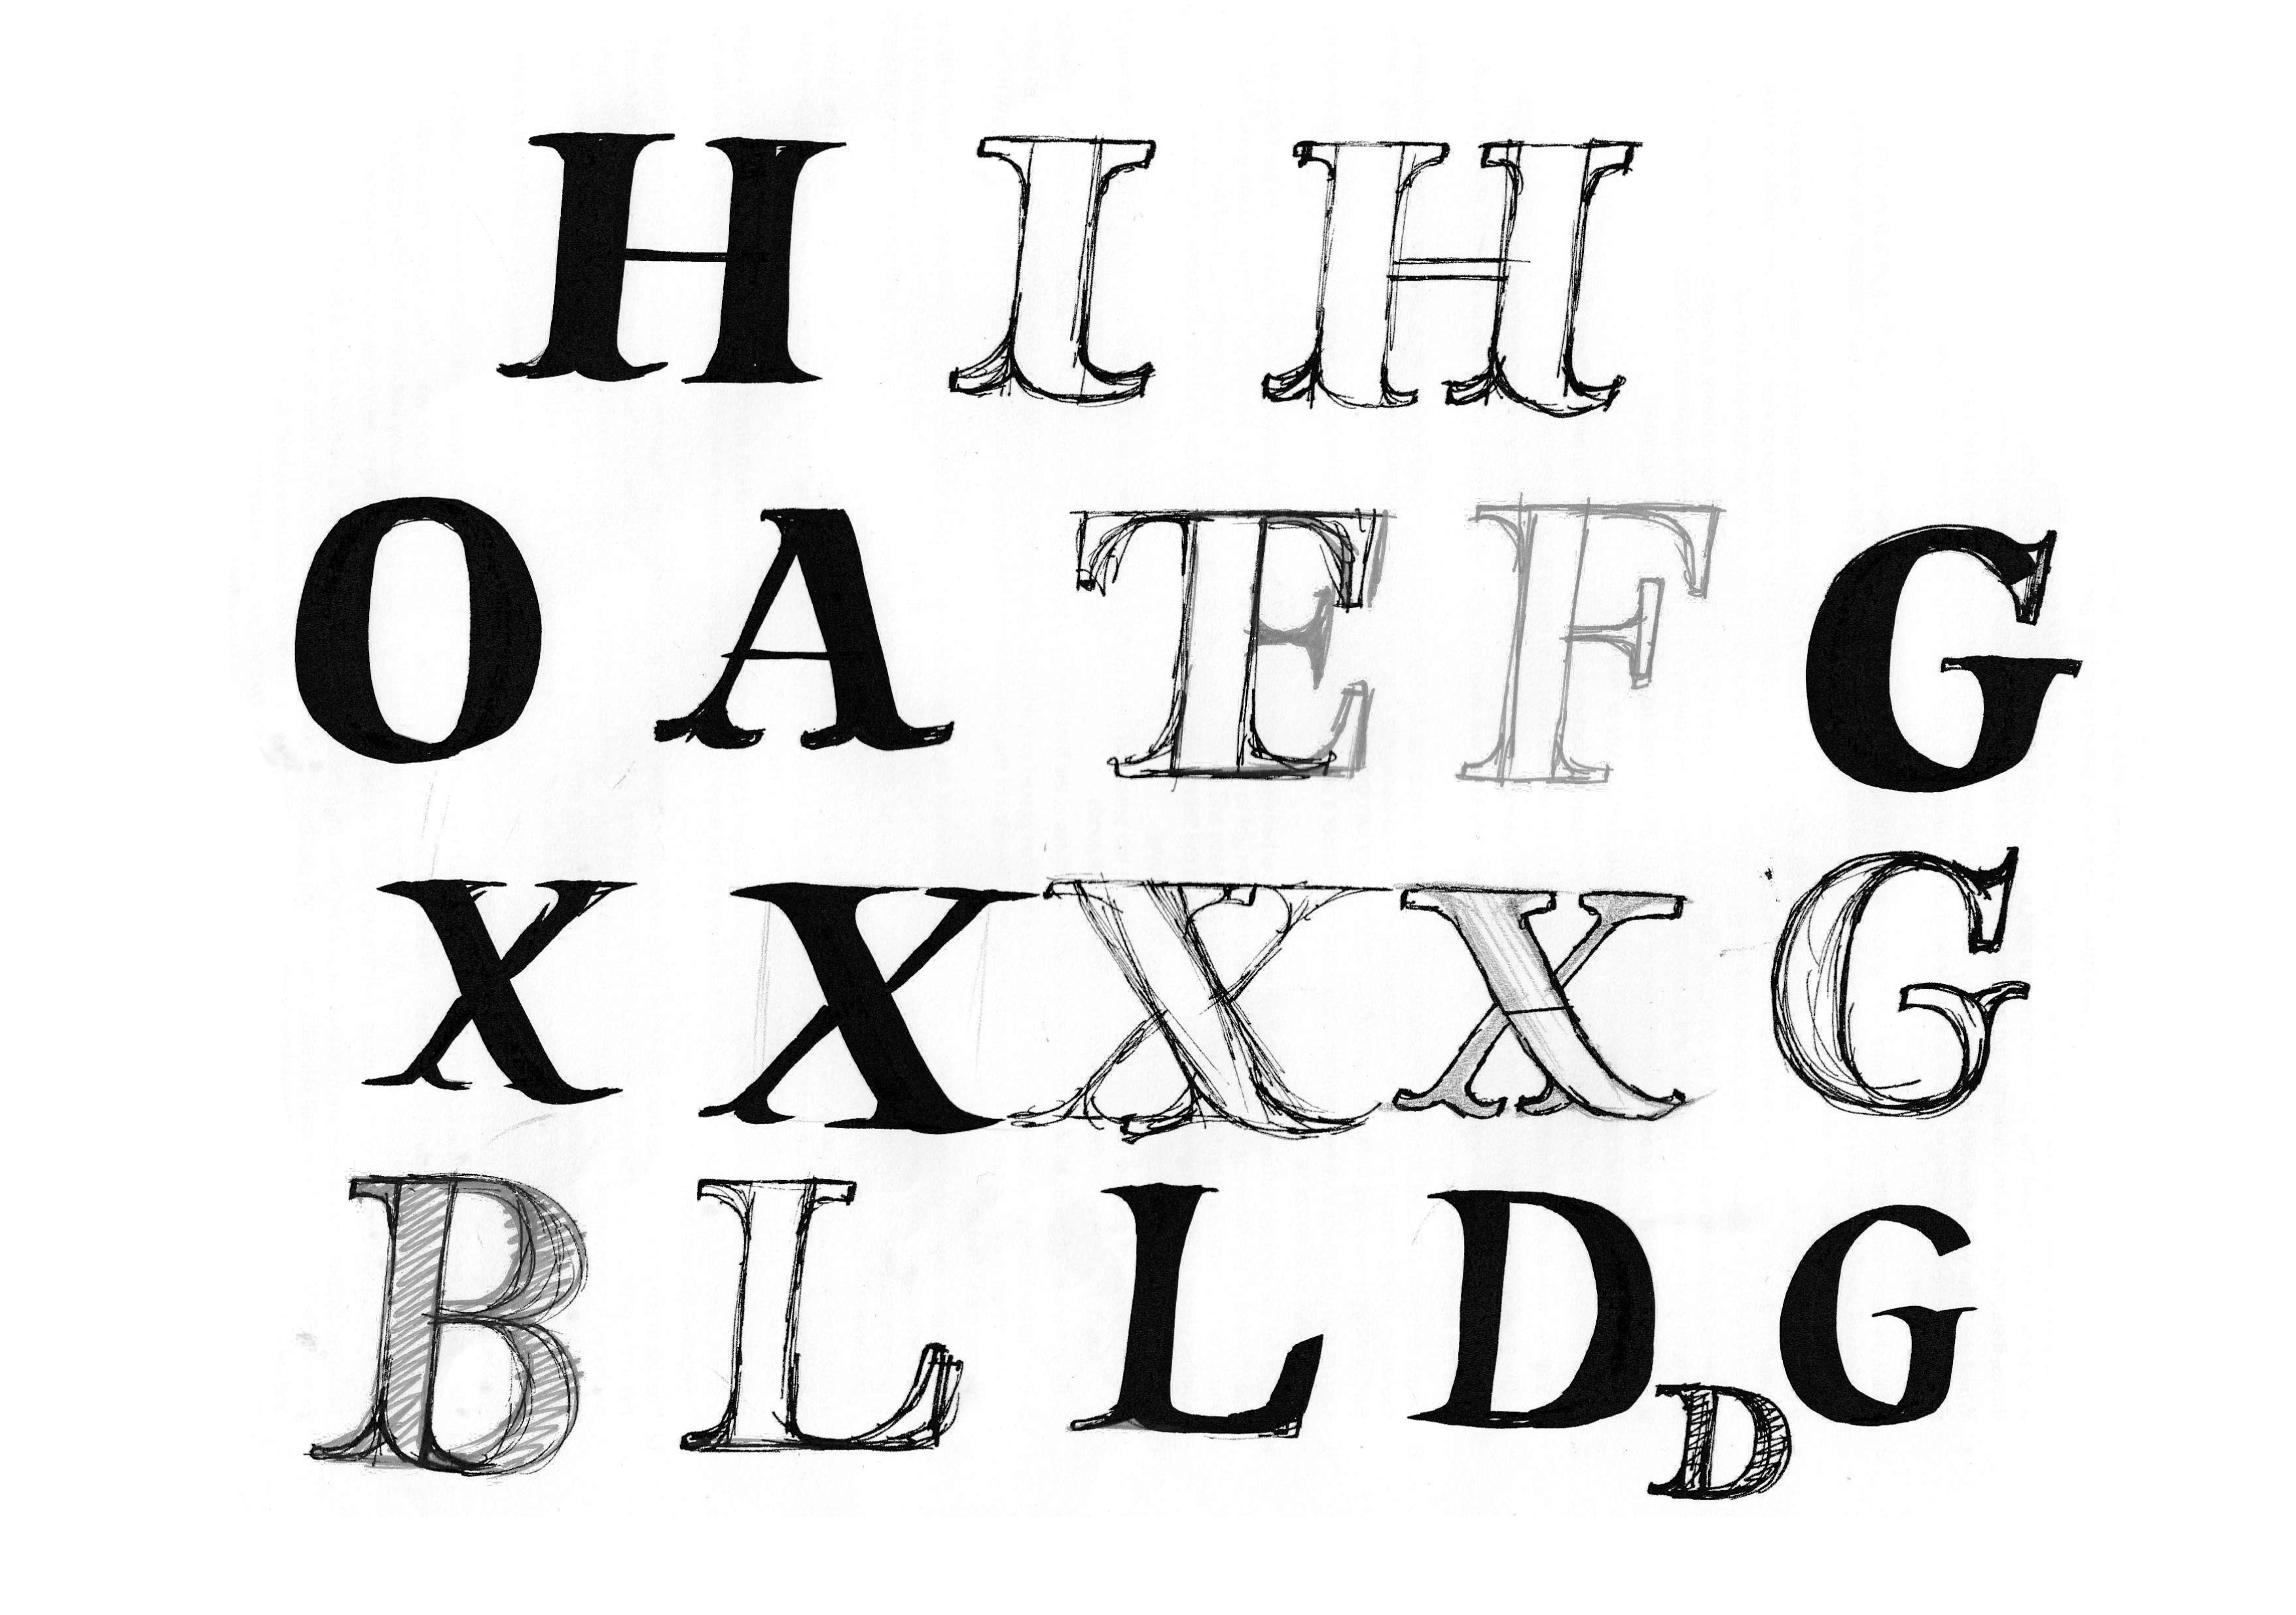 H I H
O A T E F G
X X X X G
B L L D D G